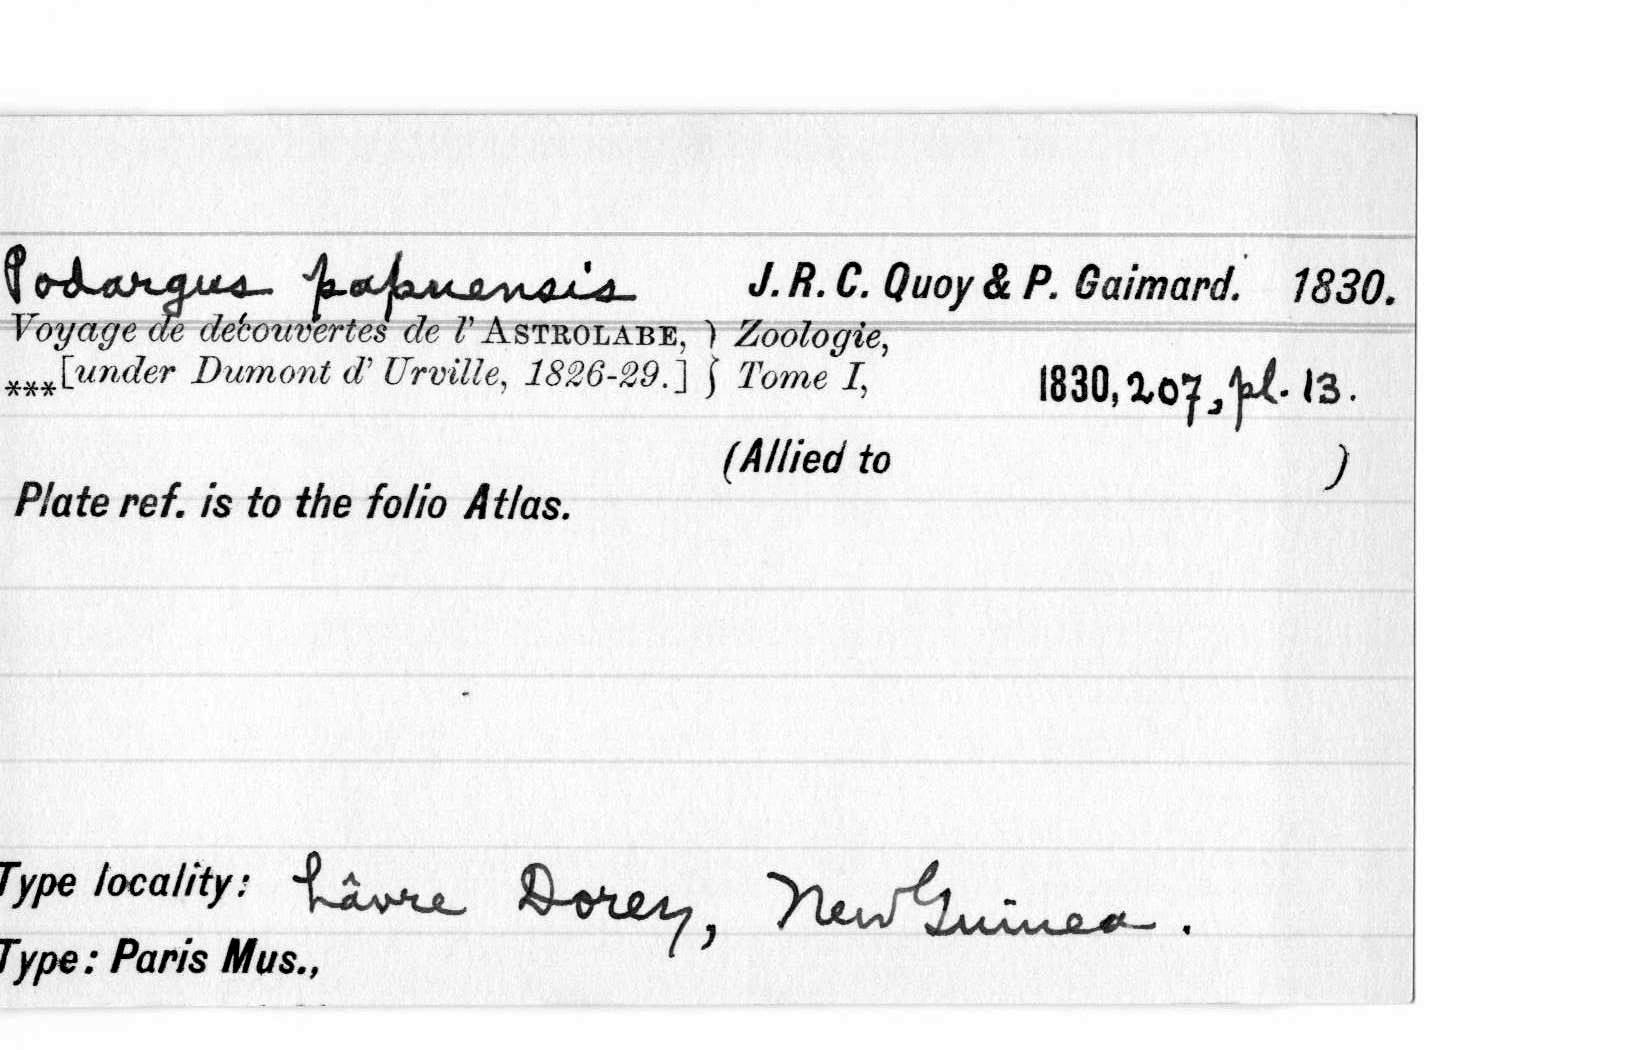 Podargus papuensis J. R. C. Quoy & P. Gaimard. 1830.
Voyage de découvertes de l' ASTROLABE, } Zoologie,
***[under Dumont d' Urville, 1826-29.] } Tome I, 1830, 207, pl. 13.
(Allied to )
Plate ref. is to the folio Atlas.
Type locality: hâvre Dorey, New Guinea.
Type: Paris Mus.,